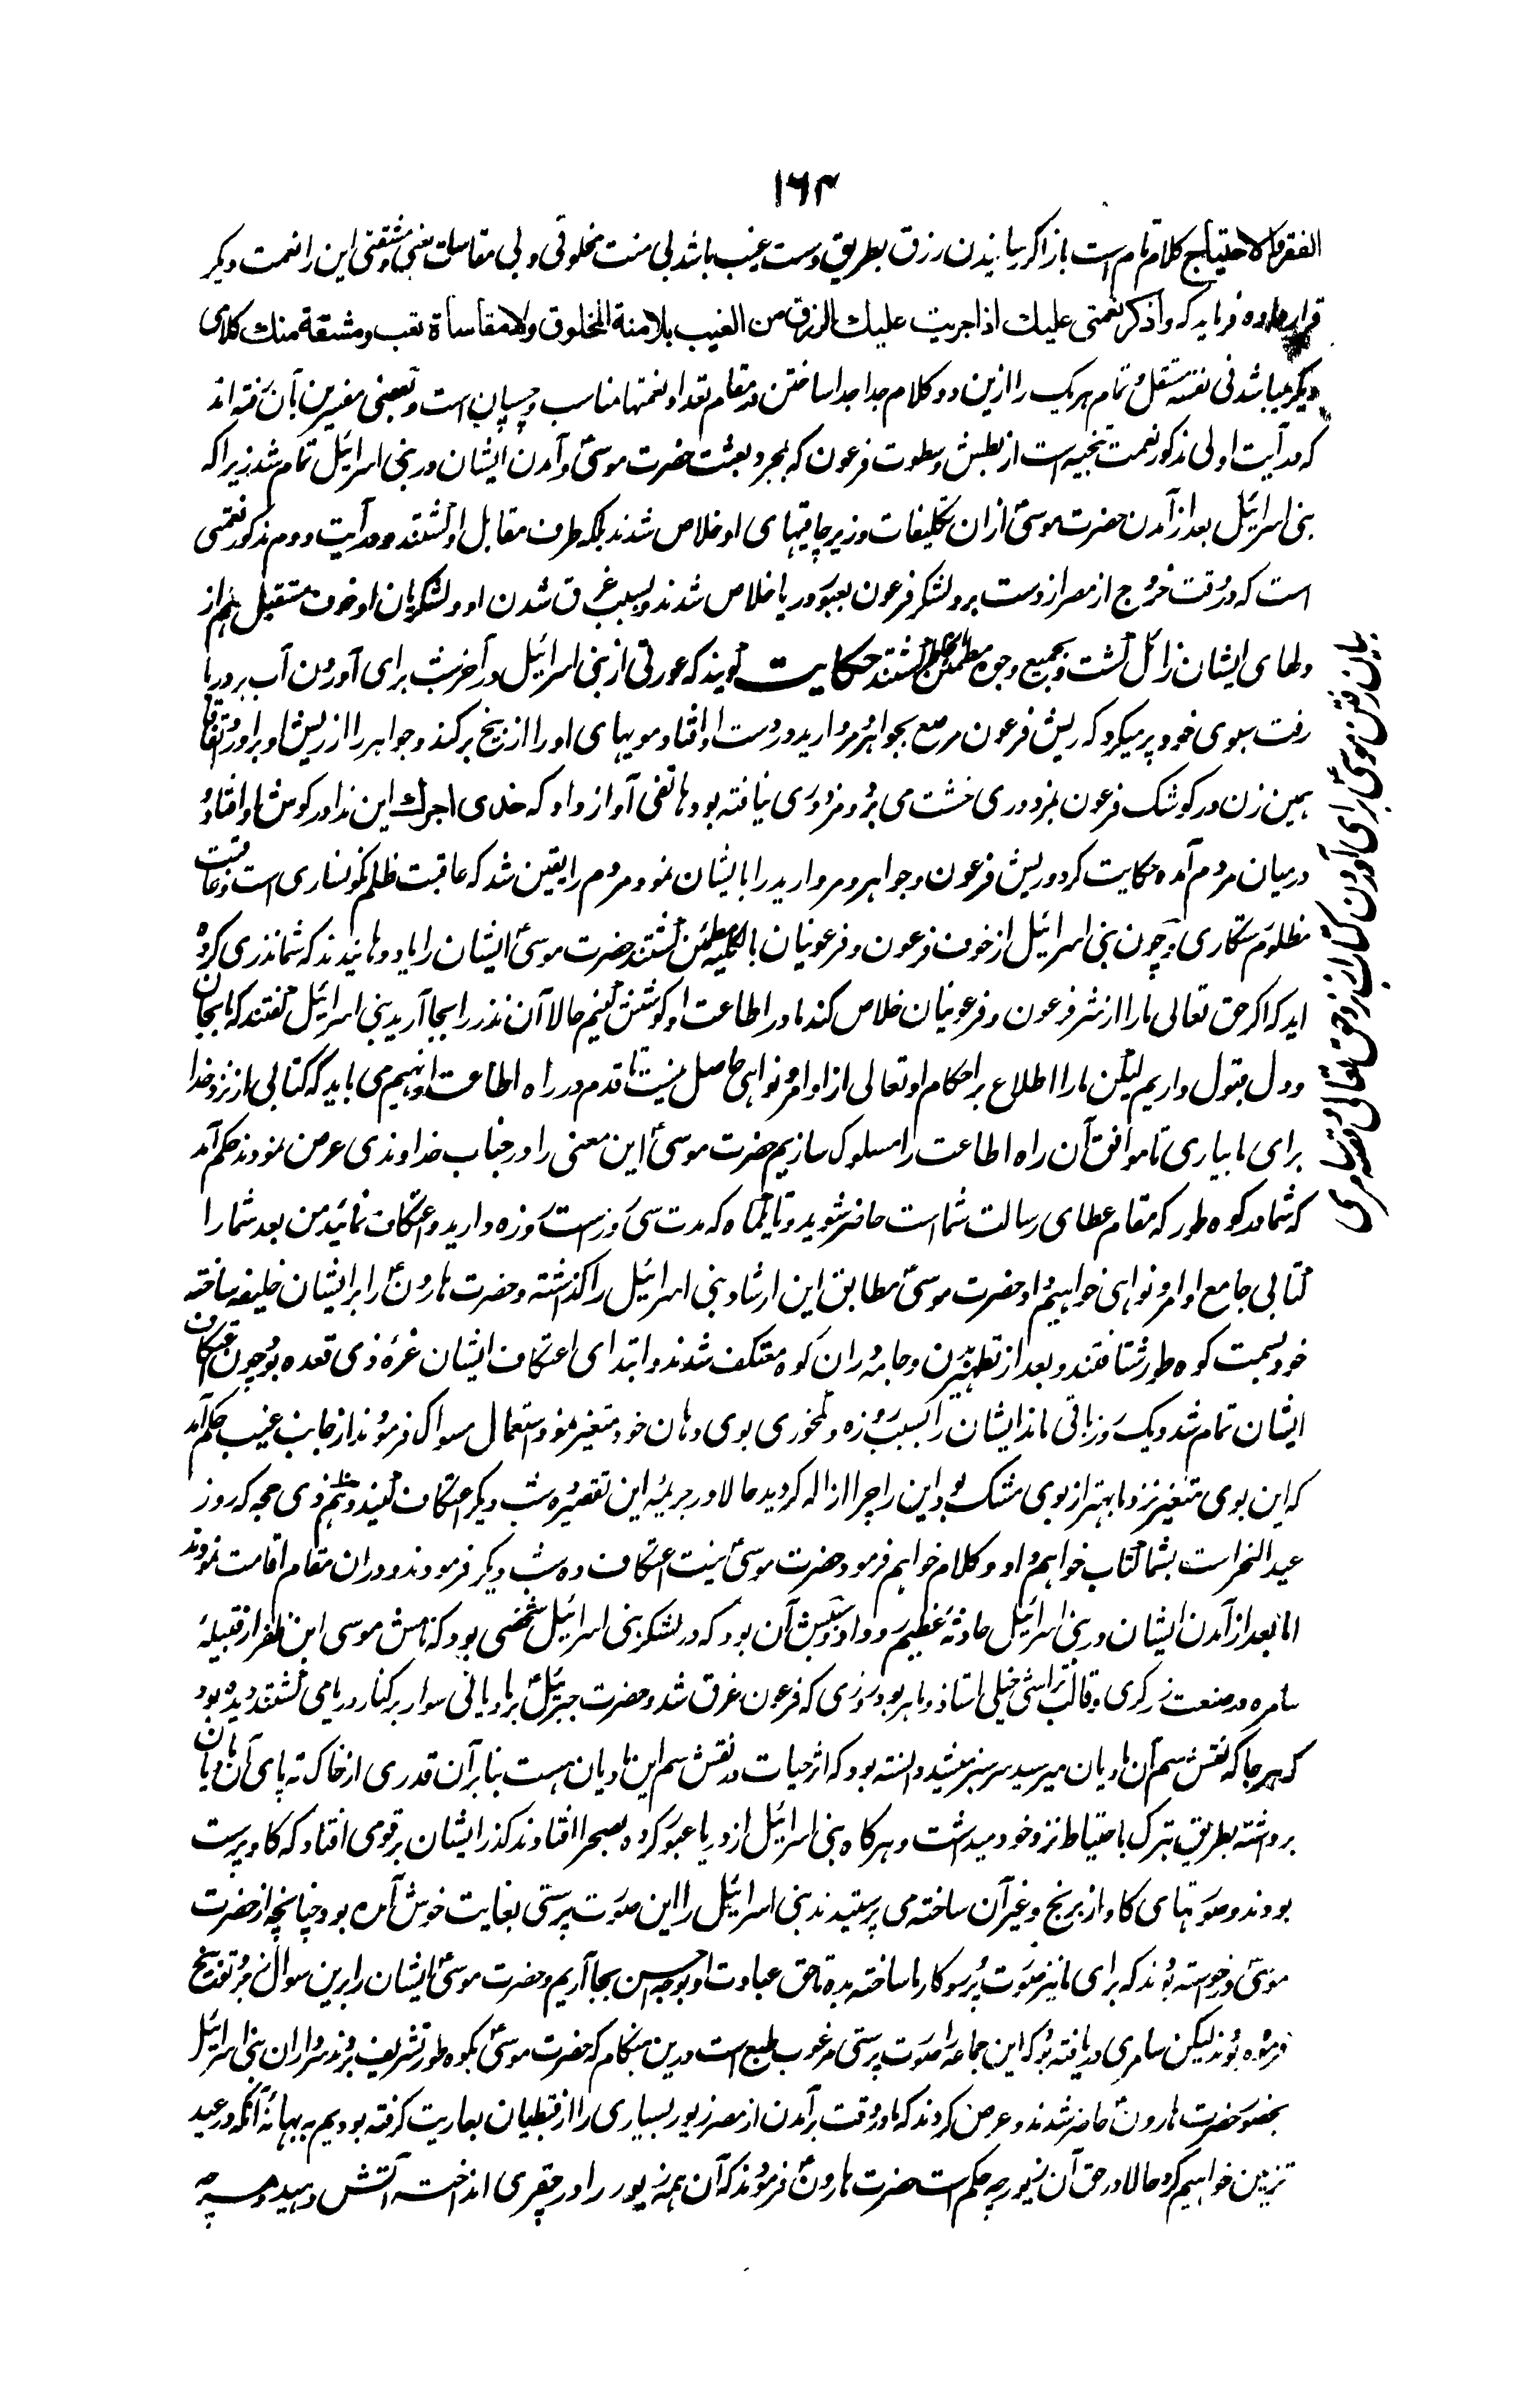 ۱۶۴
الفقر والاحتیاج کلام تام است باز اگر رسانیدن رزق بطریق دست غیب باشد بی منت مخلوقی و بی مقاسات تعبی و مشقتی این را نعمت دیگر
قرار داده فرماید که واذکر نعمتی علیك اذا اجریت علیك الرزق من الغیب بلا منة المخلوق ولا مقاساة تعب ومشقة منك کلامی
دیگر میباشد فی نفسه مستقل و تمام هر یک را ازین دو کلام جدا جدا ساختن در مقام تعداد نعمتها مناسب و چسپان است و بعضی مفسرین بآن رفته اند
که در آیت اولی مذکور نعمت تنجیه است از بطش و سطوت فرعون که بمجرد بعثت حضرت موسیٰؑ و آمدن ایشان در بنی اسرائیل تمام شد زیرا که
بنی اسرائیل بعد از آمدن حضرت موسیٰؑ از ان تکلیفات و زیر چاقیهای او خلاص شدند بلکه طرف مقابل او گشتند و در آیت دوم مذکور نعمتی
است که در وقت خروج از مصر از دست برد لشکر فرعون بعبور دریا خلاص شدند و بسبب غرق شدن او و لشکریان او خوف مستقبل هم از
دلهای ایشان زائل گشت و بجمیع وجوه مطمئن گشتند حکایت گویند که عورتی از بنی اسرائیل در آخر شب برای آوردن آب بر دریا
رفت سبوی خود پر میکرد که ریش فرعون مرصع بجواهر و مروارید در دست او افتاد مویهای او را از بیخ برکند و جواهر را از ریش او برآورد اتفاقا
همین زن در کوشک فرعون بمزدوری خشت می برد و مزدوری نیافته بود هاتفی آواز داد که خذی اجرك این ندا در گوش او افتاد و
درمیان مردم آمده حکایت کرد و ریش فرعون و جواهر و مروارید را بایشان نمود مردم را یقین شد که عاقبت ظلم نگونساری است و عاقبت
مظلوم رستگاری و چون بنی اسرائیل از خوف فرعون و فرعونیان بالکلیه مطمئن گشتند حضرت موسیٰؑ ایشان را یاد دهانیدند که شما نذری کرده
اید که اگر حق تعالی ما را از شر فرعون و فرعونیان خلاص کند ما در اطاعت او کوشش کنیم حالا آن نذر را بجا آرید بنی اسرائیل گفتند که ما بجان
و دل قبول داریم لیکن ما را اطلاع بر احکام او تعالی از اوامر و نواهی حاصل نیست تا قدم در راه اطاعت او نهیم می باید که کتابی از نزد خدا
برای ما بیاری تا موافق آن راه اطاعت را مسلوک سازیم حضرت موسیٰؑ این معنی را در جناب خداوندی عرض نمودند حکم آمد
که شما در کوه طور که مقام عطای رسالت شما است حاضر شوید و تا یکماه که مدت سی روز است روزه دارید و اعتکاف نمائید من بعد شما را
کتابی جامع اوامر و نواهی خواهیم داد حضرت موسیٰؑ مطابق این ارشاد بنی اسرائیل را گذاشته و حضرت هارونؑ را بر ایشان خلیفه ساخته
خود بسمت کوه طور شتافتند و بعد از تطهیر بدن و جامه در ان کوه معتکف شدند و ابتدای اعتکاف ایشان غرهٔ ذی قعده بود چون اعتکاف
ایشان تمام شد و یک روز باقی ماند ایشان را بسبب روزه و کمخوری بوی دهان خود متغیر نمود استعمال مسواک فرمودند از جانب غیب حکم آمد
که این بوی متغیر نزد ما بهتر از بوی مشک بود این را چرا ازاله کردید حالا در جریمهٔ این تقصیر ده شب دیگر اعتکاف کنید و دهم ذی حجه که روز
عید النحر است بشما کتاب خواهم داد و کلام خواهم فرمود حضرت موسیٰؑ نیت اعتکاف ده شب دیگر فرمودند و در ان مقام اقامت نمودند
اما بعد از آمدن ایشان در بنی اسرائیل حادثهٔ عظیم رو داد و سببش آن بود که در لشکر بنی اسرائیل شخصی بود که نامش موسی ابن ظفر از قبیلهٔ
سامره در صنعت زرگری و قالب تراشی خیلی استاذ و ماهر بود روزی که فرعون غرق شد و حضرت جبرئیلؑ بر مادیانی سوار بر کنار دریا می گشتند دیده بود
که هر جا که نقش سم آن مادیان میرسید سرسبز میشد دانسته بود که اثر حیات در نقش سم این مادیان هست بنابر آن قدری از خاک ته پای آن مادیان
برداشته بطریق تبرک باحتیاط نزد خود میداشت و هرگاه بنی اسرائیل از دریا عبور کرده بصحرا افتادند گذر ایشان بر قومی افتاد که گاو پرست
بودند و صورتهای گاو از برنج و غیر آن ساخته می پرستیدند بنی اسرائیل را این صورت پرستی بغایت خوش آمده بود چنانچه از حضرت
موسیٰؑ درخواسته بودند که برای ما نیز صورت پروردگار ما ساخته بده تا حق عبادت او بوجه احسن بجا آریم و حضرت موسیٰؑ ایشان را برین سوال زجر و توبیخ
فرموده بودند لیکن سامری دریافته بود که این جماعه را صورت پرستی مرغوب طبع است درین هنگام که حضرت موسیٰؑ بکوه طور تشریف بردند سرداران بنی اسرائیل
بحضور حضرت هارونؑ حاضر شدند و عرض کردند که ما در وقت برآمدن از مصر زیور بسیاری را از قبطیان بعاریت گرفته بودیم به بهانهٔ آنکه در عید
تزیین خواهیم کرد حالا در حق آن زیور چه حکم است حضرت هارونؑ فرمودند که آن همه زیور را در حفری انداخته آتش دهید و هر چه
بیان رفتن موسیٰؑ برای آوردن کتاب از نزد حق تعالی و قصه سامری